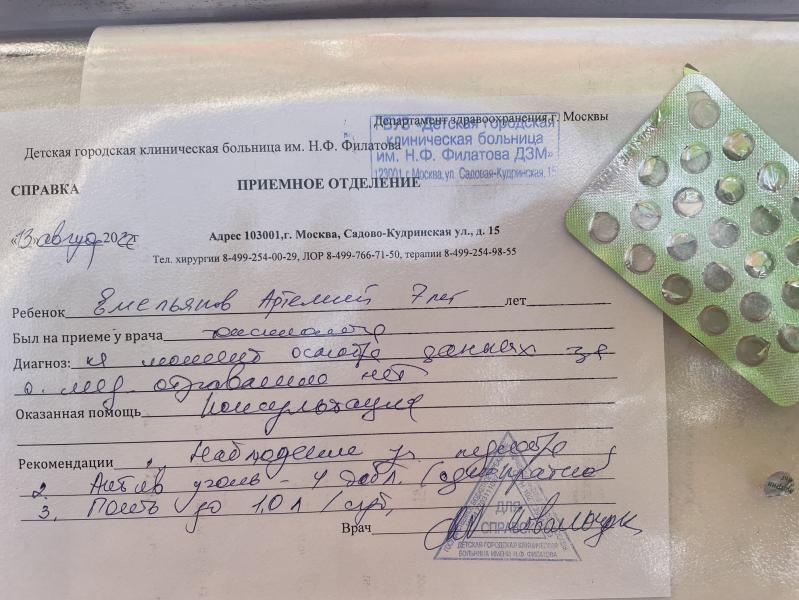 Департамент здравоохранения г. Москвы
ГБУЗ «Детская городская
клиническая больница
им. Н.Ф. Филатова ДЗМ»
123001 г.Москва, ул. Садовая-Кудринская, 15
Детская городская клиническая больница им. Н.Ф. Филатова
СПРАВКА
ПРИЕМНОЕ ОТДЕЛЕНИЕ
«13» август 2022г
Адрес 103001,г. Москва, Садово-Кудринская ул., д. 15
Тел. хирургии 8-499-254-00-29, ЛОР 8-499-766-71-50, терапии 8-499-254-98-55
Ребенок Емельянов Артемий 7 лет лет
Был на приеме у врача токсиколога
Диагноз: на момент осмотра данных за
о. мед. отравление нет
Оказанная помощь консультация
Рекомендации 1, Наблюдение уч. педиатра
2. Актив уголь - 4 табл. (однократно)
3. Поить до 1,0 л / сут,
Врач
ДЛЯ
СПРАВОК
ДЕТСКАЯ ГОРОДСКАЯ КЛИНИЧЕСКАЯ
БОЛЬНИЦА ИМЕНИ Н.Ф. ФИЛАТОВА